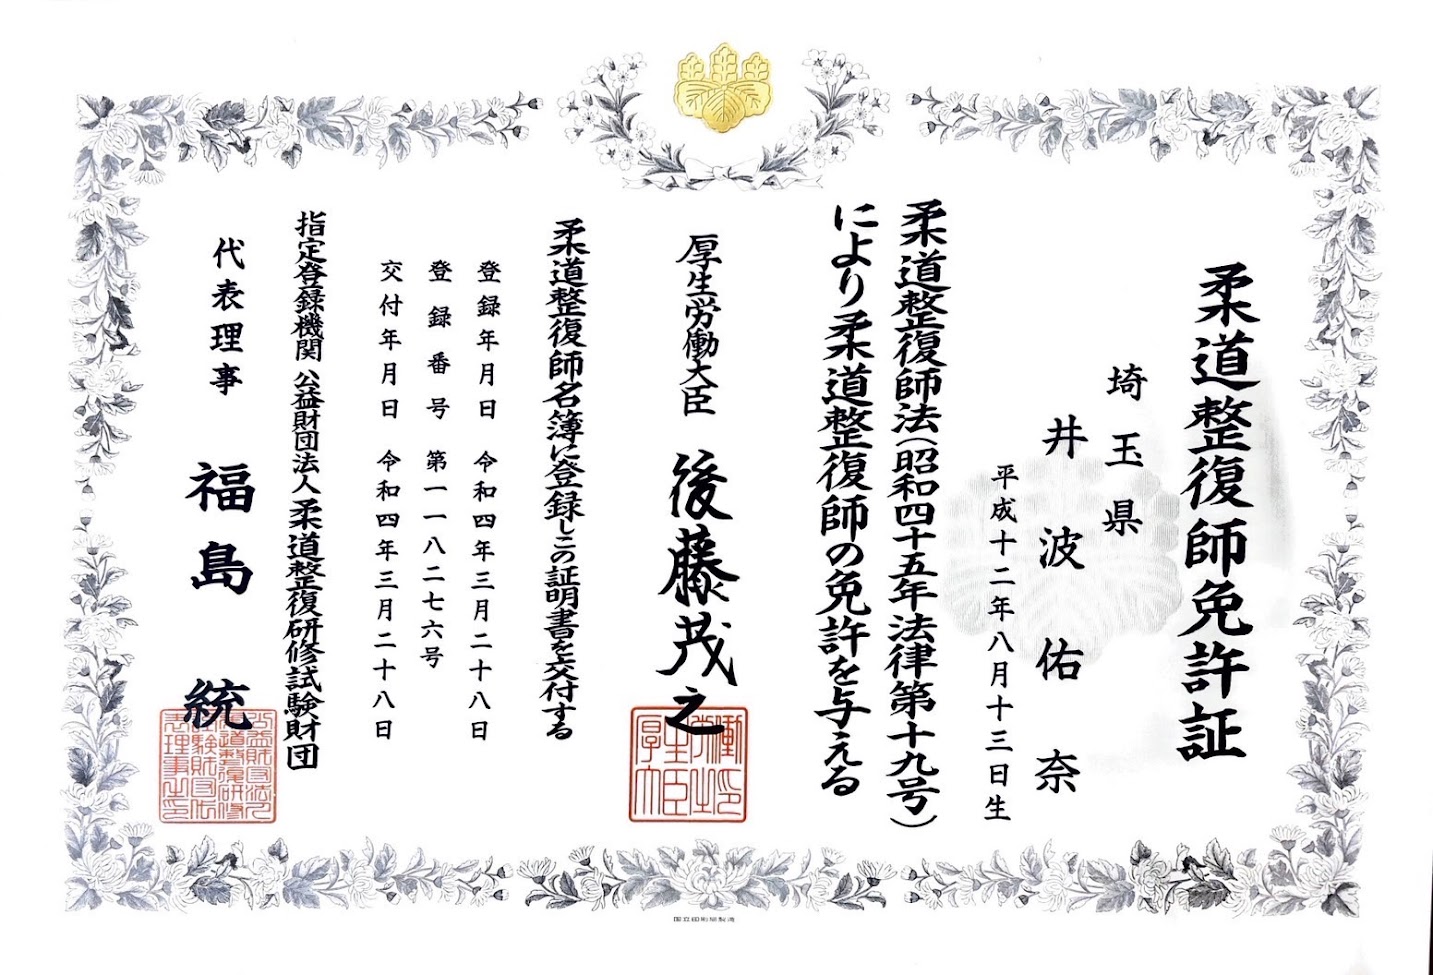 柔道整復師免許証
埼玉県
井波佑奈
平成十二年八月十三日生
柔道整復師法(昭和四十五年法律第十九号)
により柔道整復師の免許を与える
厚生労働大臣 後藤茂之
柔道整復師名簿に登録しこの証明書を交付する
登録年月日 令和四年三月二十八日
登録番号 第一一八二七六号
交付年月日 令和四年三月二十八日
指定登録機関 公益財団法人 柔道整復研修試験財団
代表理事 福島統
国立印刷局製造